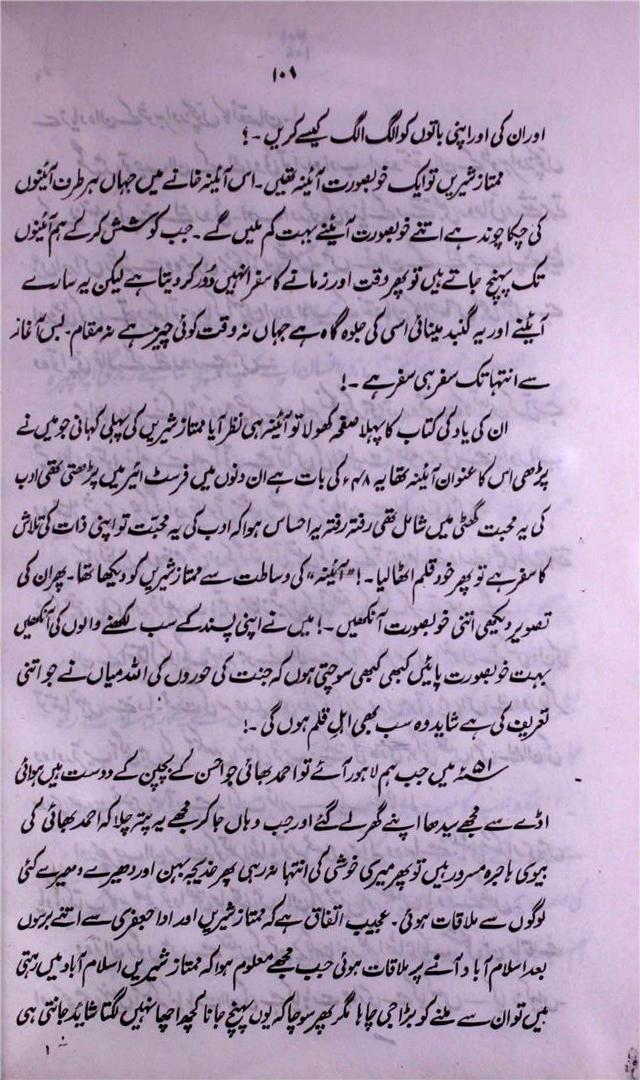 ۱۰۹
اور ان کی اور اپنی باتوں کو الگ الگ کیسے کریں ۔؟
ممتاز شیریں تو ایک خوبصورت آئینہ تھیں۔ اس آئینہ خانے میں جہاں ہر طرف آئینوں
کی چکا چوند ہے اتنے خوبصورت آیٔنے بہت کم ملیں گے ۔ جب کوشش کر کے ہم آئینوں
تک پہنچ جاتے ہیں تو پھر وقت اور زمانے کا سفر انہیں دُور کر دیتا ہے لیکن یہ سارے
آیٔنے اور یہ گنبدِ مینائی اسی کی جلوہ گاہ ہے جہاں نہ وقت کوئی چیز ہے نہ مقام۔ بس آغاز
سے انتہا تک سفر ہی سفر ہے ۔!
ان کی یاد کی کتاب کا پہلا صفحہ کھولا تو آئینہ ہی نظر آیا ممتاز شیریں کی پہلی کہانی جو میں نے
پڑھی اس کا عنوان آئینہ تھا یہ ۴۸ء کی بات ہے ان دنوں میں فرسٹ ائیر میں پڑھتی تھی ادب
کی یہ محبت گھٹی میں شامل تھی رفتہ رفتہ یہ احساس ہوا کہ ادب کی یہ محبّت تو اپنی ذات کی تلاش
کا سفر ہے تو پھر خود قلم اٹھا لیا ۔! "آئینہ" کی وساطت سے ممتاز شیریں کو دیکھا تھا۔ پھر ان کی
تصویر دیکھی اتنی خوبصورت آنکھیں ۔! میں نے اپنی پسند کے سب لکھنے والوں کی آنکھیں
بہت خوبصورت پائیں کبھی کبھی سوچتی ہوں کہ جنت کی حوروں کی اللہ میاں نے جو اتنی
تعریف کی ہے شاید وہ سب بھی اہلِ قلم ہوں گی ۔!
۵۱ء میں جب ہم لاہور آئے تو احمد بھائی جو احسن کے بچپن کے دوست ہیں ہوائی
اڈے سے مجھے سیدھا اپنے گھر لے گئے اور جب وہاں جا کر مجھے یہ پتہ چلا کہ احمد بھائی کی
بیوی ہاجرہ مسرور ہیں تو پھر میری خوشی کی انتہا نہ رہی پھر خدیجہ بہن اور دھیرے دھیرے کئی
لوگوں سے ملاقات ہوئی۔ عجیب اتفاق ہے کہ ممتاز شیریں اور ادا جعفری سے اتنے برسوں
بعد اسلام آباد آنے پر ملاقات ہوئی جب مجھے معلوم ہوا کہ ممتاز شیریں اسلام آباد میں رہتی
ہیں تو ان سے ملنے کو بڑا جی چاہا مگر پھر سوچا کہ یوں پہنچ جانا کچھ اچھا نہیں لگتا شائد جانتی ہی